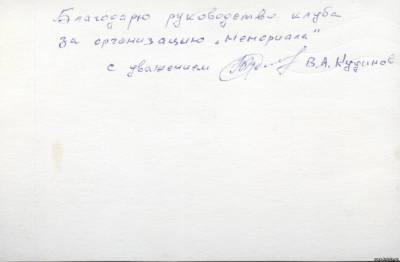 Благодарю руководство клуба
за организацию „Мемориала"
с уважением В.А. Кудинов